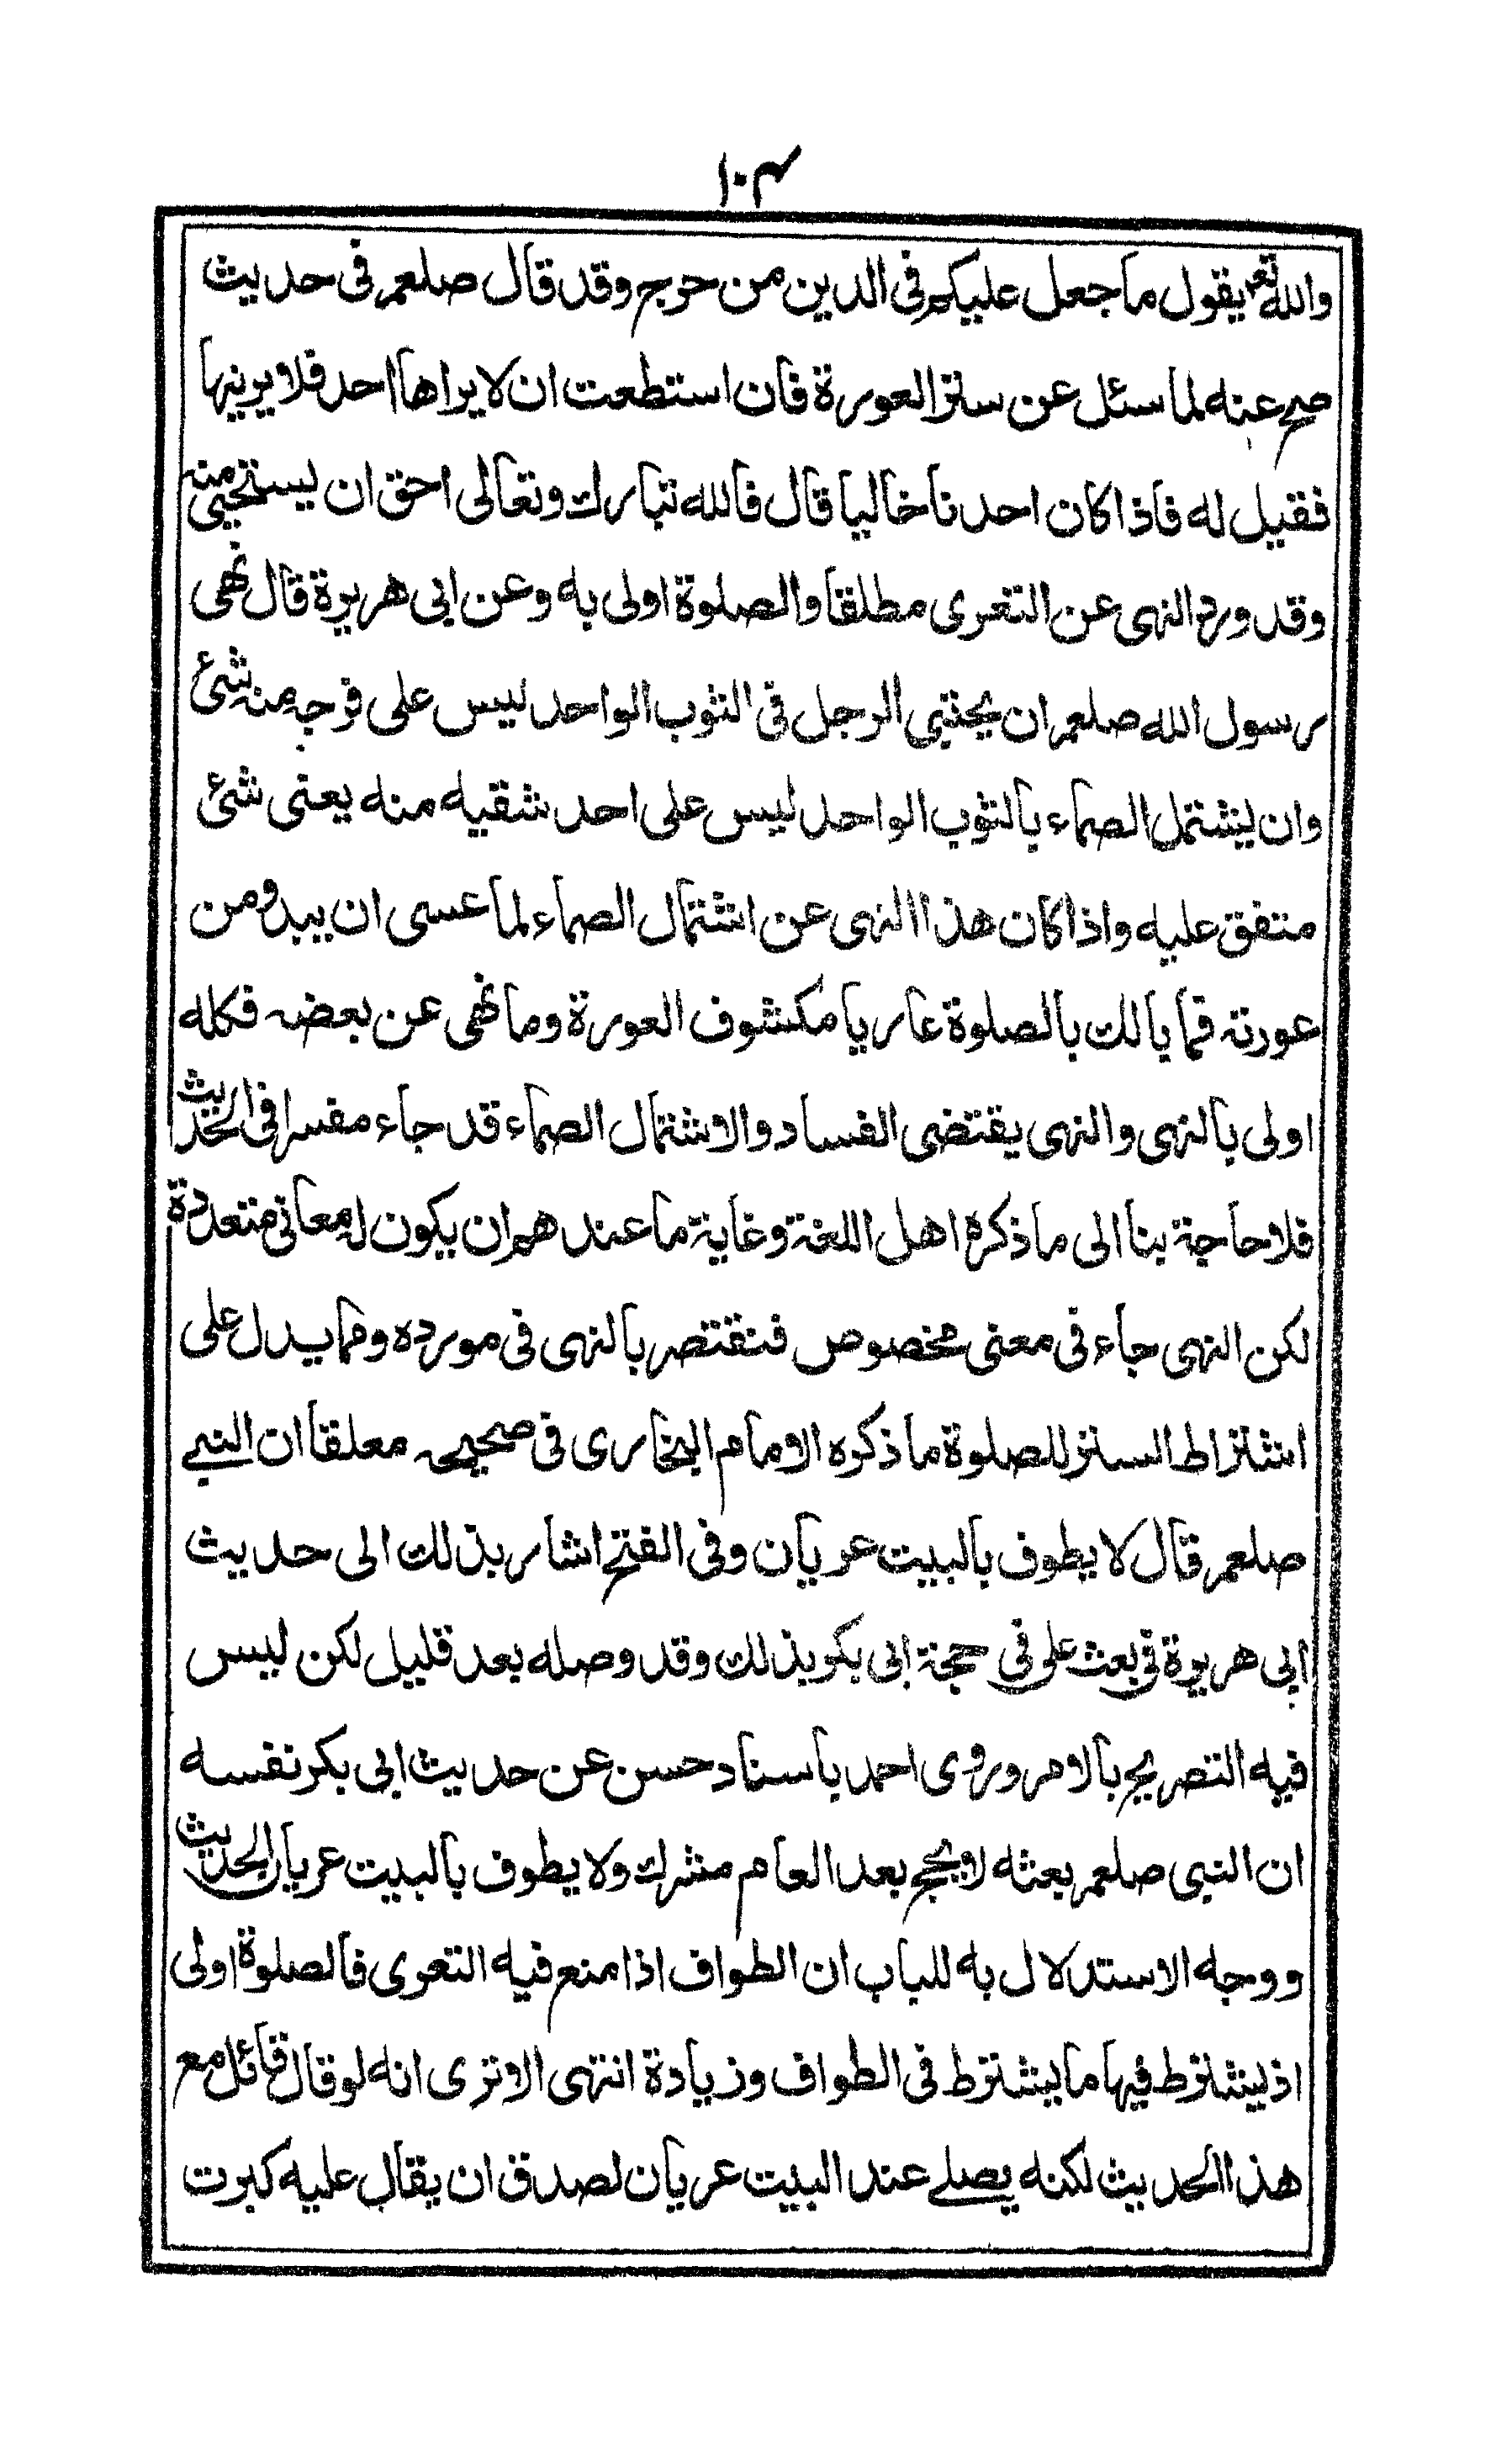 ١٠٣
والله تعم يقول ما جعل عليكم في الدين من حرج وقد قال صلعم في حديث
صح عنه لما سئل عن ستر العورة فان استطعت ان لا يراها احد فلا يرينها
فقيل له فاذا كان احدنا خاليا قال فالله تبارك وتعالى احق ان يستحيى منه
وقد ورد النهى عن التعرى مطلقا والصلوة اولى به وعن ابى هريرة قال نهى
رسول الله صلعم ان يحتبى الرجل فى الثوب الواحد ليس على فرجه منه شئ
وان يشتمل الصماء بالثوب الواحد ليس على احد شقيه منه يعنى شئ
متفق عليه واذا كان هذا النهى عن اشتمال الصماء لما عسى ان يبدو من
عورته فما يالك بالصلوة عاريا مكشوف العورة وما نهى عن بعضه فكله
اولى بالنهى والنهى يقتضى الفساد والاشتمال الصماء قد جاء مفسرا فى الحديث
فلا حاجة بنا الى ما ذكره اهل اللغة وغاية ما عندهم ان يكون له معانى متعددة
لكن النهى جاء فى معنى مخصوص فنقتصر بالنهى فى مورده ومما يدل على
اشتراط الستر للصلوة ما ذكره الامام البخارى فى صحيحه معلقا ان النبے
صلعم قال لا يطوف بالبيت عريان وفى الفتح اشار بذلك الى حديث
ابى هريرة فى بعث على فى حجة ابى بكر بذلك وقد وصله بعد قليل لكن ليس
فيه التصريح بالامر وروى احمد باسناد حسن عن حديث ابى بكر نفسه
ان النبى صلعم بعثه لا يحج بعد العام مشرك ولا يطوف بالبيت عريان الحديث
ووجه الاستدلال به للباب ان الطواف اذا منع فيه التعرى فالصلوة اولى
اذ يشترط فيها ما يشترط فى الطواف وزيادة انتهى الا ترى انه لو قال قائل مع
هذا الحديث لكنه يصلے عند البيت عريان لصدق ان يقال عليه كبرت